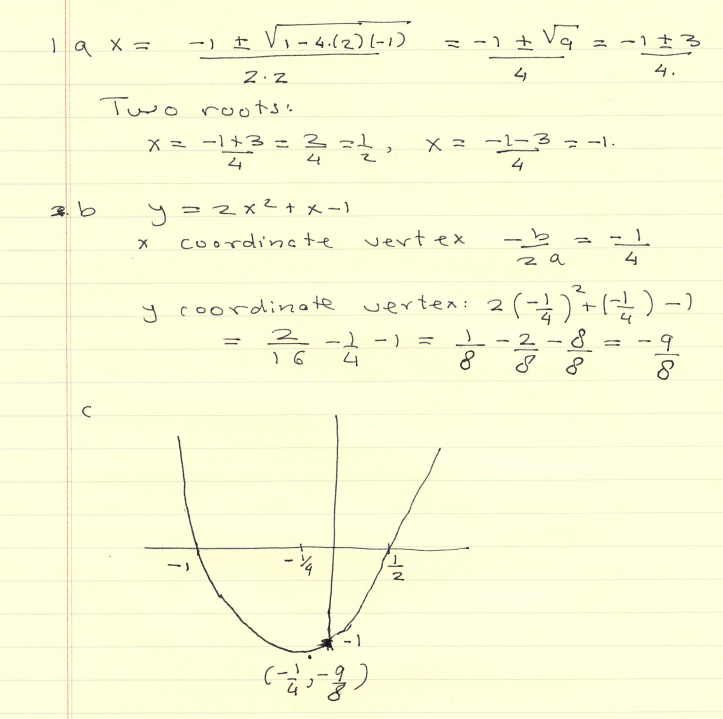 1 a x = (-1 ± √(1-4.(2)(-1)))/(2·2) = (-1 ± √9)/4 = (-1 ± 3)/4.
Two roots:
x = (-1+3)/4 = 2/4 = 1/2, x = (-1-3)/4 = -1.
b y = 2x² + x - 1
x coordinate vertex -b/2a = -1/4
y coordinate vertex: 2(-1/4)² + (-1/4) - 1
= 2/16 - 1/4 - 1 = 1/8 - 2/8 - 8/8 = -9/8
c
-1 -1/4 1/2
-1
(-1/4, -9/8)